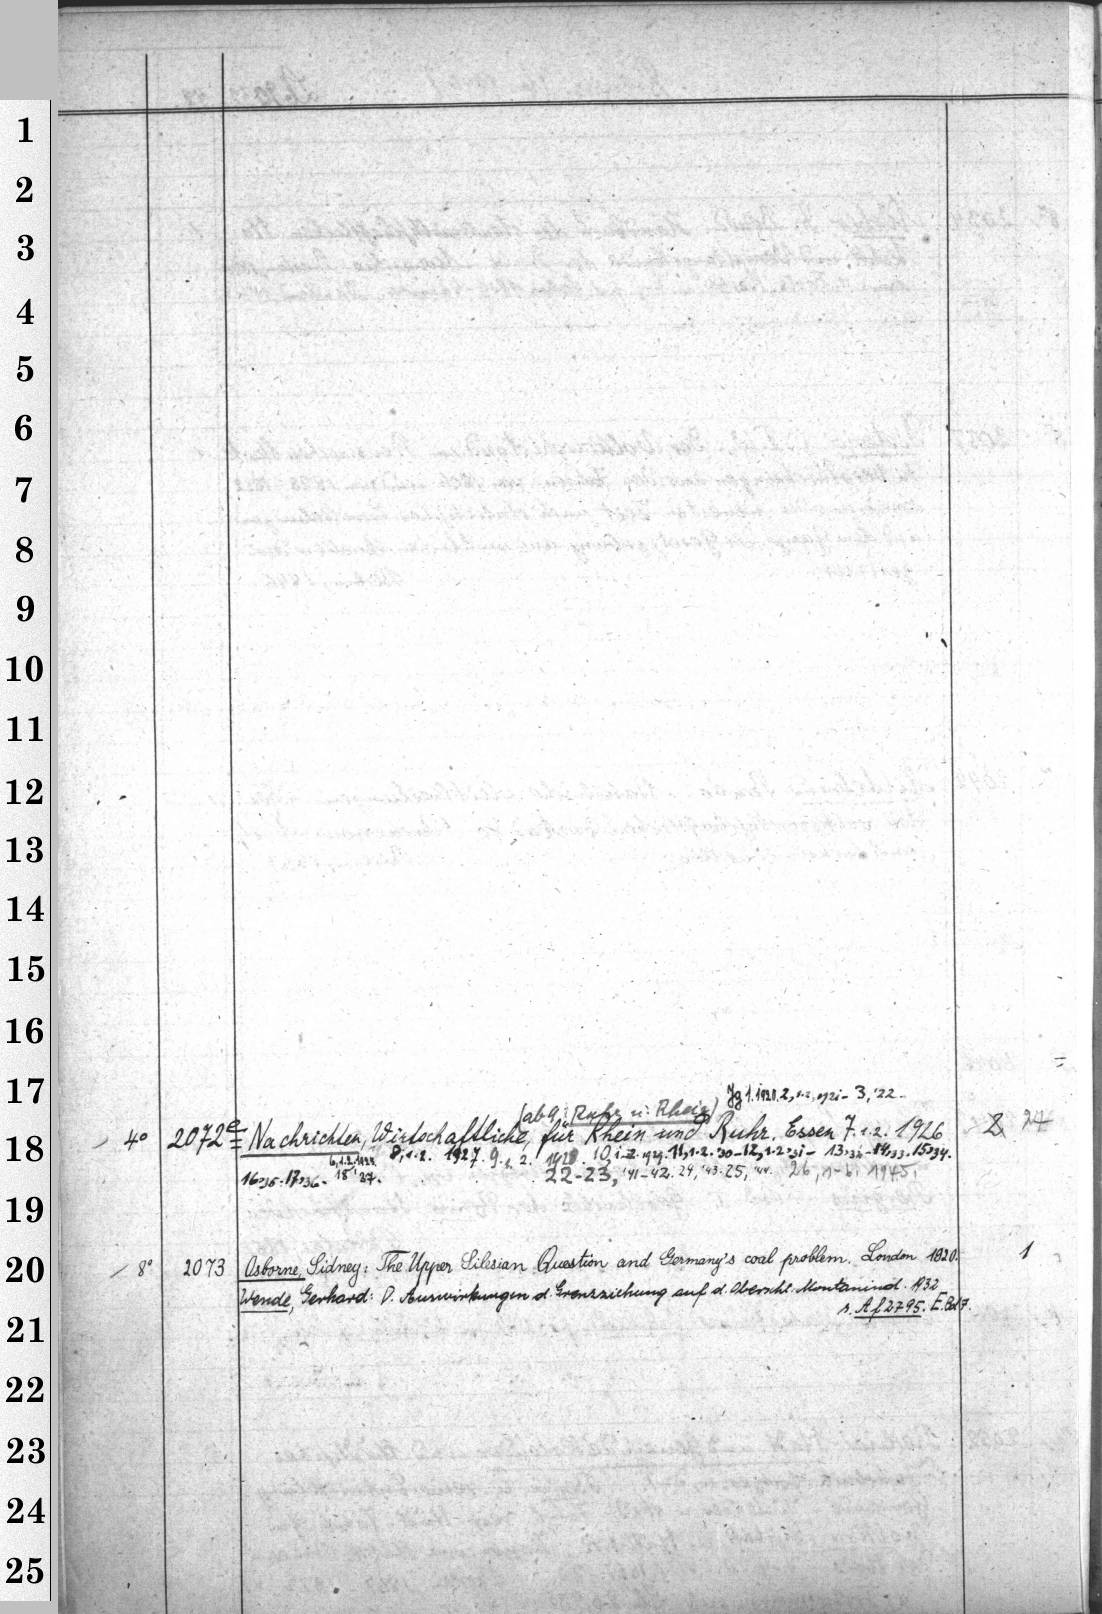 1
2
3
4
5
6
7
8
9
10
11
12
13
14
15
16
17
Jg 1.1920. 2, 1-2, 1921- 3, '22.
(ab 9: Ruhr u. Rhein)
18
4° 2072e Nachrichten, Wirtschaftliche, für Rhein und Ruhr. Essen 7.1.2. 1926 24
6,1.2.1925. 8,1.2. 1927. 9.1.2. 1928. 10,1-2.1929. 11,1.2.'30-12,1.2.'31- 13,'32-14,'33-15,'34.
16,'35-17,'36- 18,'37. 22-23, '41-42. 24, '43. 25, '44. 26, 1-6. 1945.
19
20
8° 2073 Osborne, Sidney: The Upper Silesian Question and Germany's coal problem. London 1920. 1
Wende, Gerhard: D. Auswirkungen d. Grenzziehung auf d. Oberschl. Montanind. 1932
s. Af 2795. E. Bd 7.
21
22
23
24
25